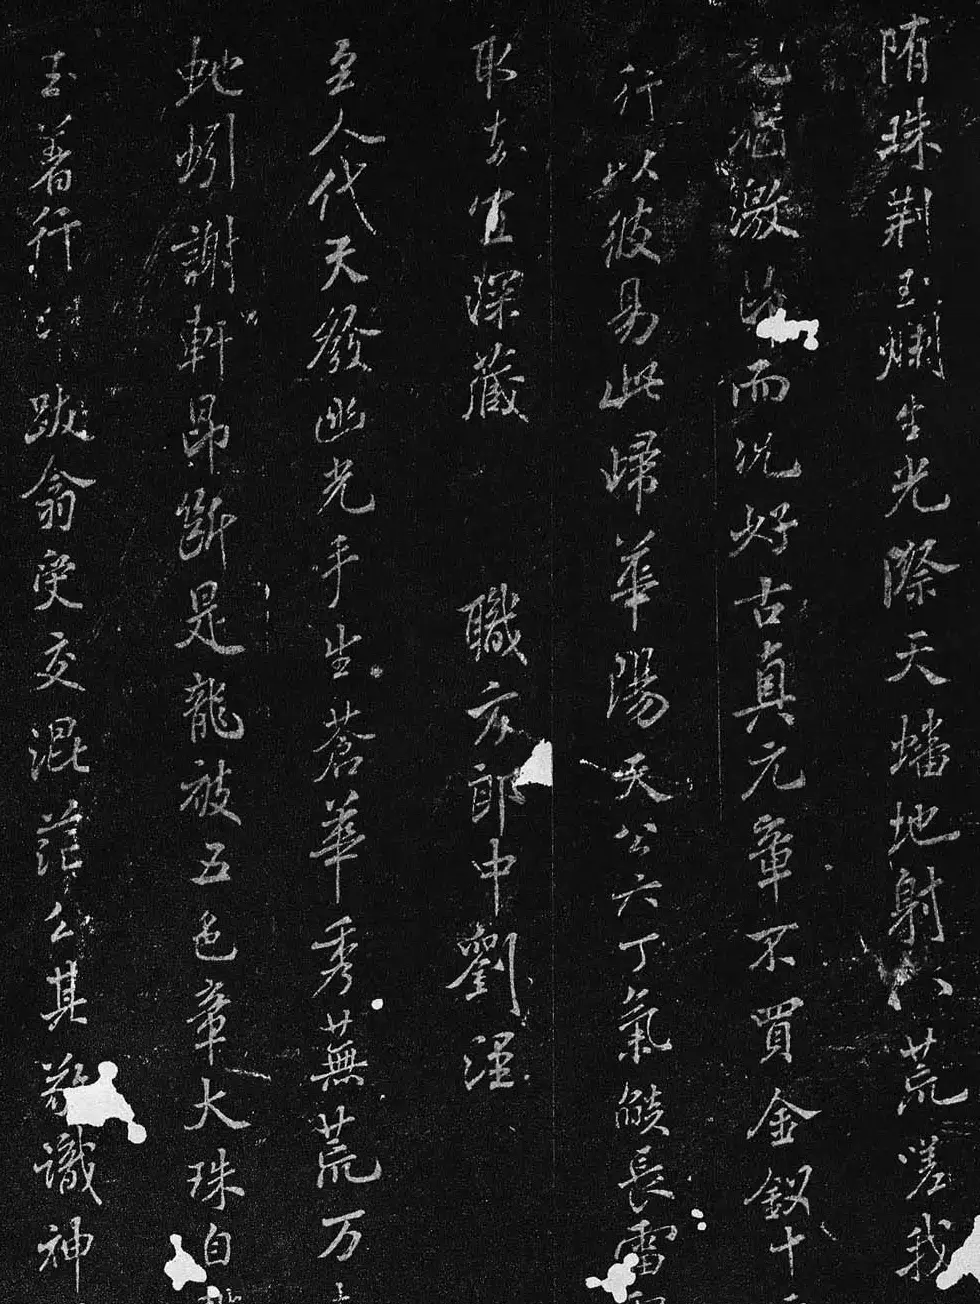 隋珠荆玉爛生光際天蟠地射八荒嗟我
激而洗好古真元章不買金釵十
行以彼易此歸華陽天公六丁氣燄長雷
取去宜深藏 職方郎中劉涇
至人代天發幽光手生蒼華秀蕪荒万
虵蚓謝軒昂斷是龍被五色章大珠自
玉著行 跋翁受交混茫公其敬識神